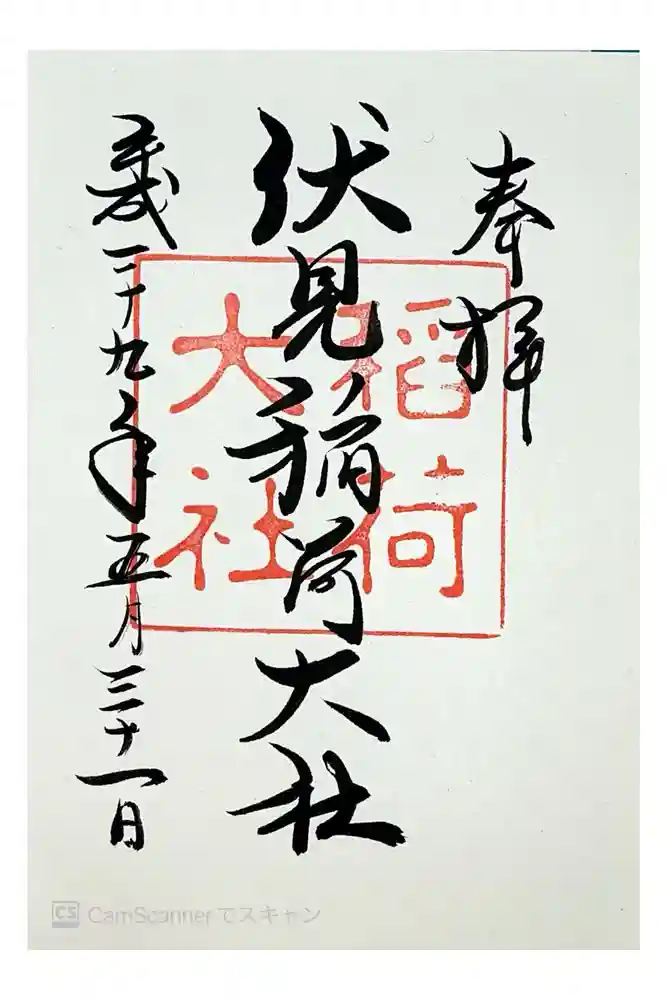 奉拝
伏見稲荷大社
平成二十九年五月三十一日
稲荷
大社
CS CamScannerでスキャン